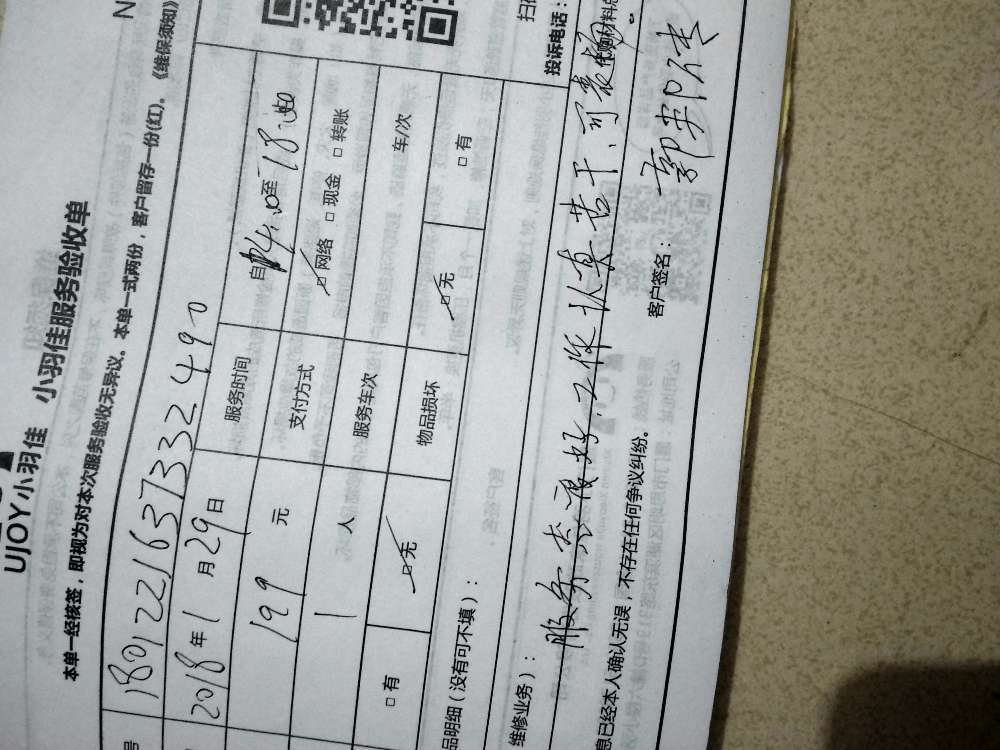 N
UJOY小羽佳 小羽佳服务验收单
本单一经核签，即视为对本次服务验收无异议。本单一式两份，客户留存一份(红)。《维保须知》
号 18012216373332490
2018年1月29日 服务时间 自14:00至18:00
199元 支付方式 网络 现金 转账
1人 服务车次 车/次
有 无 物品损坏 无 有
品明细（没有可不填）：
扫
投诉电话：
维修业务）：
服务态度好，工作认真苦干，可表扬.
息已经本人确认无误，不存在任何争议纠纷。 客户签名：